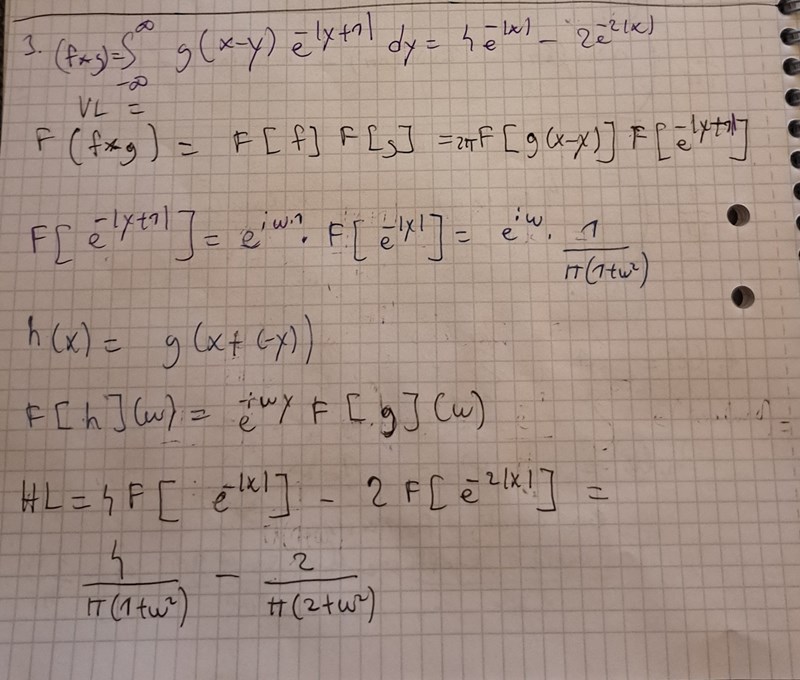 3. (f*g)=∫_{-∞}^{∞} g(x-y) e^{-|y+1|} dy = 4e^{-|x|} - 2e^{-2|x|}
VL =
F(f*g) = F[f] F[g] = 2π F[g(x-y)] F[e^{-|y+1|}]
F[e^{-|y+1|}] = e^{iω·1} · F[e^{-|x|}] = e^{iω} · 1/(π(1+ω²))
h(x) = g(x+(-y))
F[h](ω) = e^{-iωy} F[g](ω)
HL = 4F[e^{-|x|}] - 2F[e^{-2|x|}] =
4/(π(1+ω²)) - 2/(π(2+ω²))